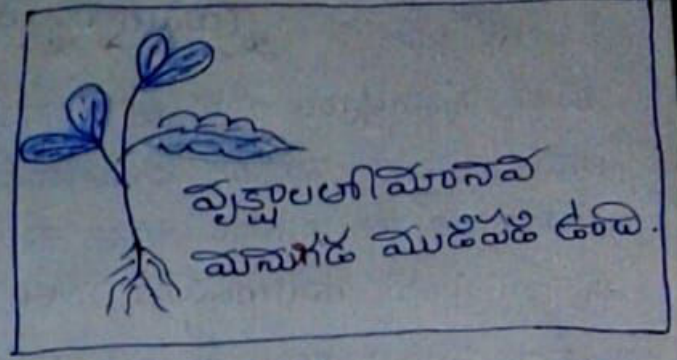 వృక్షాలలో మానవ
మనుగడ ముడిపడి ఉంది.